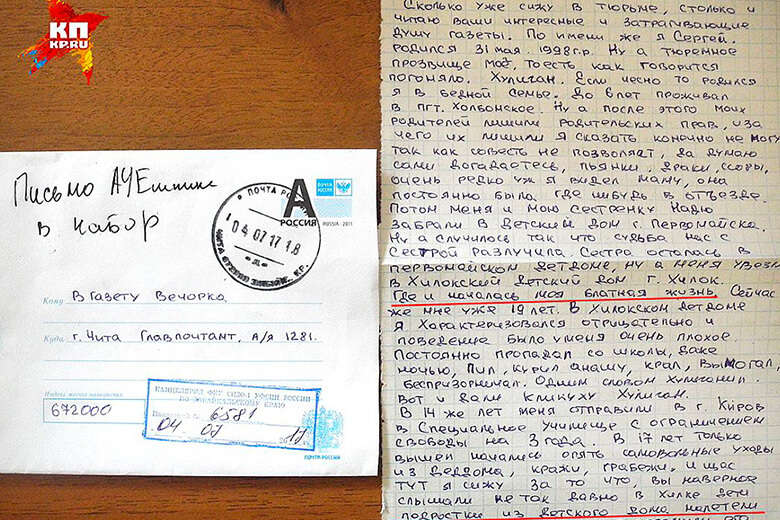 КП
KP.RU
Письмо АУЕшника
в набор
ПОЧТА РОССИИ
04 07 17 18
А
РОССИЯ
RUSSIA - 2011
ПОЧТА РОССИИ
Кому В газету Вечорка
Куда г. Чита Главпочтамт, А/я 1281.
Индекс места назначения
672000
КАНЦЕЛЯРИЯ ФКУ СИЗО УФСИН РОССИИ
ПО ЗАБАЙКАЛЬСКОМУ КРАЮ
6581
04 07 17
ПОЧТА РОССИИ
Сколько уже сижу в тюрьме, столько и
читаю ваши интересные и затрагивающие
душу газеты. По имени же я Сергей.
родился 31 мая 1998 г.р. Ну а тюремное
прозвище моё, тоесть как говорится
погоняло. Хулиган. Если чесно то родился
я в бедной семье. До лет проживал
в пгт. Холбонское. Ну а после этого моих
родителей лишили родительских прав, из за
чего их лишили я сказать конечно не могу
так как совесть не позволяет, да думаю
сами догадаетесь, пьянки, драки, ссоры,
очень редко уж я видел маму, она
постоянно была где нибудь в отъезде.
Потом меня и мою сестренку Надю
забрали в Детский Дом г. Первомайска.
Ну а случилось так что судьба нас с
Сестрой разлучила. Сестра осталась в
первомайском детдоме, ну а меня увезли
в Хилокский детский дом г. Хилок.
Где и началась моя блатная жизнь. Сейчас
же мне уже 19 лет. В Хилокском детдоме
я Характеризовался отрицательно и
поведение было у меня очень плохое.
Постоянно пропадал со школы, даже
ночью, пил, курил анашу, крал, вымогал,
беспризорничал. Одним словом Хулиганил.
Вот и дали кликуху Хулиган.
В 14 же лет меня отправили в г. Киров
в Специальное Училище с ограничением
свободы на 3 года. В 17 лет только
вышел начались опять самовольные уходы
из деддома, кражи, грабежи, и щас
тут я сижу за то что, вы наверное
слышали не так давно в Хилке дети
подростки из детского дома налетели